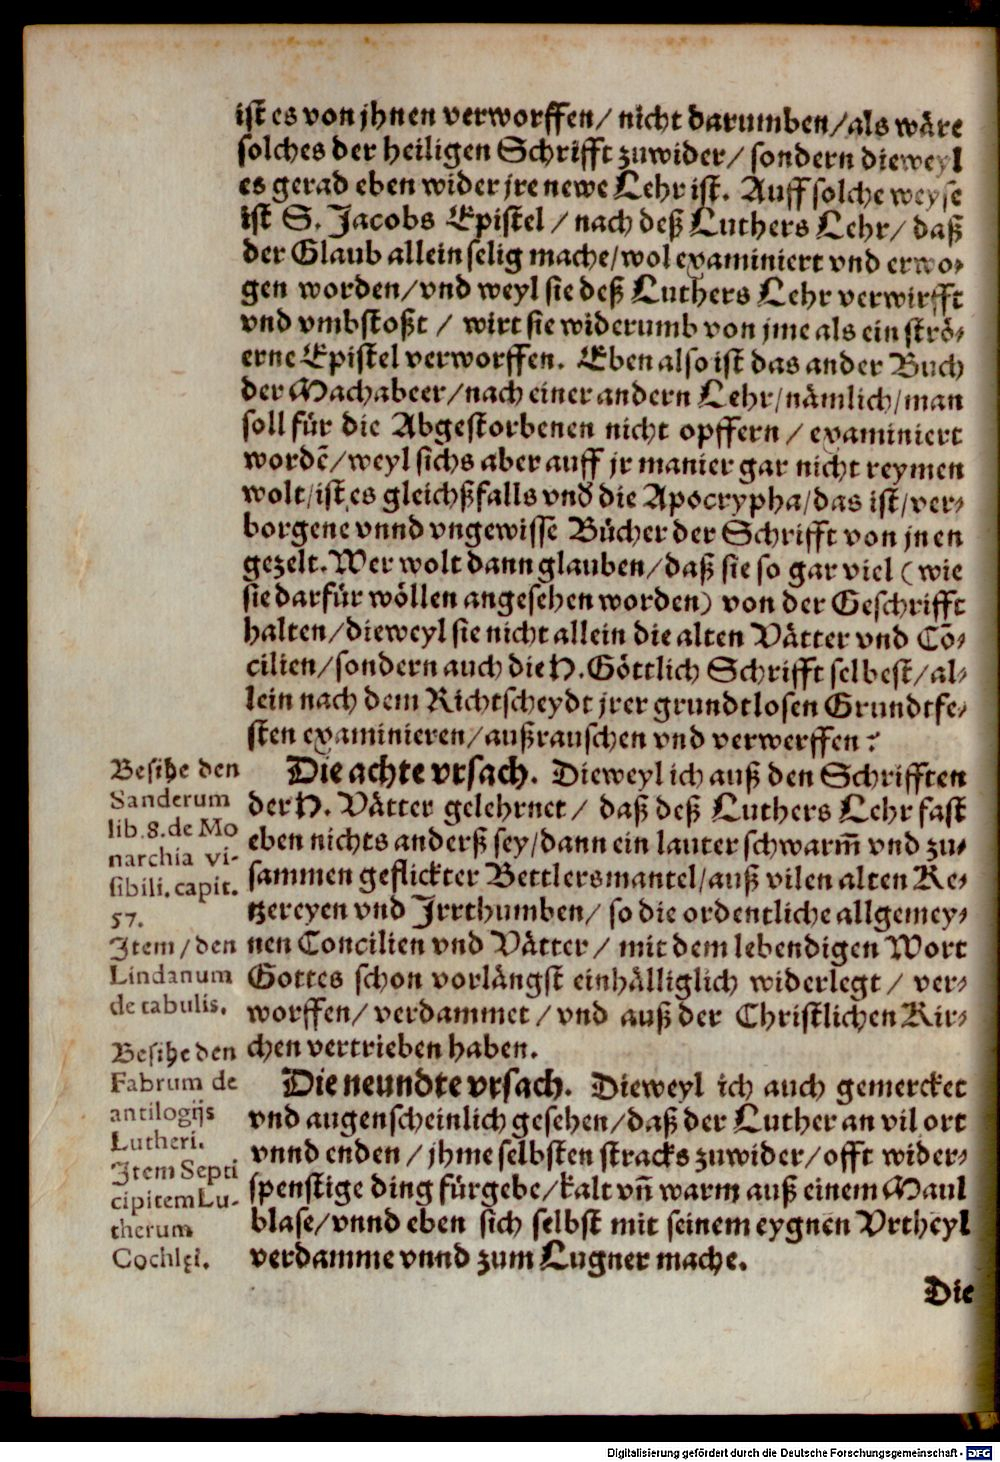 ist es von jhnen verworffen/ nicht darumben/als wäre
solches der heiligen Schrifft zuwider/ sondern dieweyl
es gerad eben wider jre newe Lehr ist. Auff solche weyse
ist S. Jacobs Epistel / nach deß Luthers Lehr/ daß
der Glaub allein selig mache/wol examiniert vnd erwo-
gen worden/vnd weyl sie deß Luthers Lehr verwirfft
vnd vmbstoßt / wirt sie widerumb von jme als ein strö-
erne Epistel verworffen. Eben also ist das ander Buch
der Machabeer/nach einer andern Lehr/nämlich/man
soll für die Abgestorbenen nicht opffern / examiniert
wordẽ/weyl sichs aber auff jr manier gar nicht reymen
wolt/ist es gleichßfalls vnd die Apocrypha/das ist/ver-
borgene vnnd vngewisse Bücher der Schrifft von jnen
gezelt. Wer wolt dann glauben/daß sie so gar viel (wie
sie darfür wöllen angesehen worden) von der Geschrifft
halten/dieweyl sie nicht allein die alten Vätter vnd Cõ-
cilien/sondern auch die H. Göttlich Schrifft selbest/al-
lein nach dem Richtscheydt jrer grundtlosen Grundtfe-
sten examinieren/außrauschen vnd verwerffen?
Die achte vrsach. Dieweyl ich auß den Schrifften
der H. Vätter gelehrnet / daß deß Luthers Lehr fast
eben nichts anderß sey/dann ein lauter schwarm̃ vnd zu-
sammen geflickter Bettlersmantel/auß vilen alten Ke-
tzereyen vnd Jrrthumben/ so die ordentliche allgemey-
nen Concilien vnd Vätter / mit dem lebendigen Wort
Gottes schon vorlängst einhälliglich widerlegt / ver-
worffen/ verdammet / vnd auß der Christlichen Kir-
chen vertrieben haben.
Die neundte vrsach. Dieweyl ich auch gemercket
vnd augenscheinlich gesehen/daß der Luther an vil ort
vnnd enden / jhme selbsten stracks zuwider/offt wider-
spenstige ding fürgebe/kalt vñ warm auß einem Maul
blase/vnnd eben sich selbst mit seinem eygnen Vrtheyl
verdamme vnnd zum Lugner mache.
Die
Besihe den
Sanderum
lib. 8. de Mo
narchia vi-
sibili. capit.
57.
Item/den
Lindanum
de tabulis.
Besihe den
Fabrum de
antilogijs
Lutheri.
Item Septi
cipitem Lu-
therum
Cochlęi.
Digitalisierung gefördert durch die Deutsche Forschungsgemeinschaft - DFG